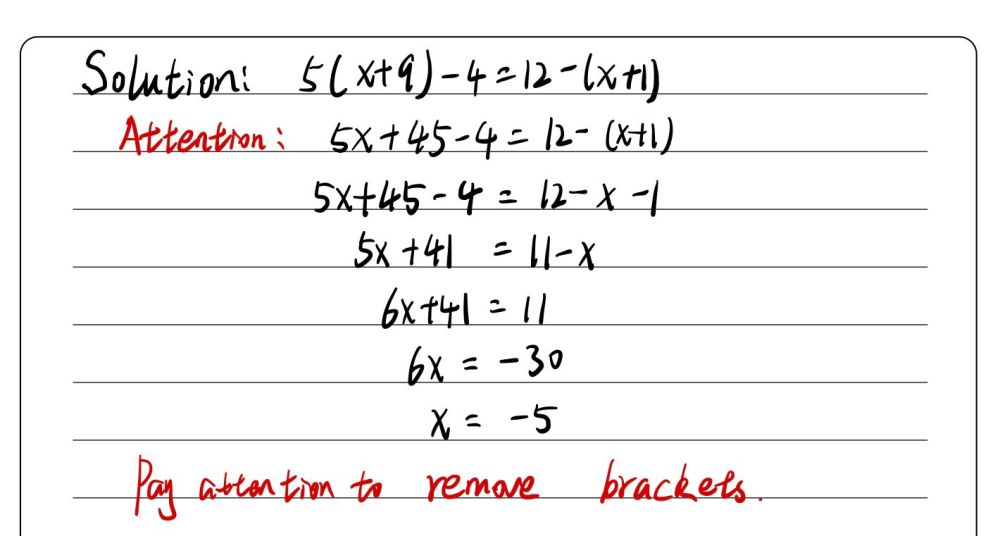 Solution: 5(x+9)-4=12-(x+1)
Attention: 5x+45-4=12-(x+1)
5x+45-4=12-x-1
5x+41=11-x
6x+41=11
6x=-30
x=-5
Pay attention to remove brackets.